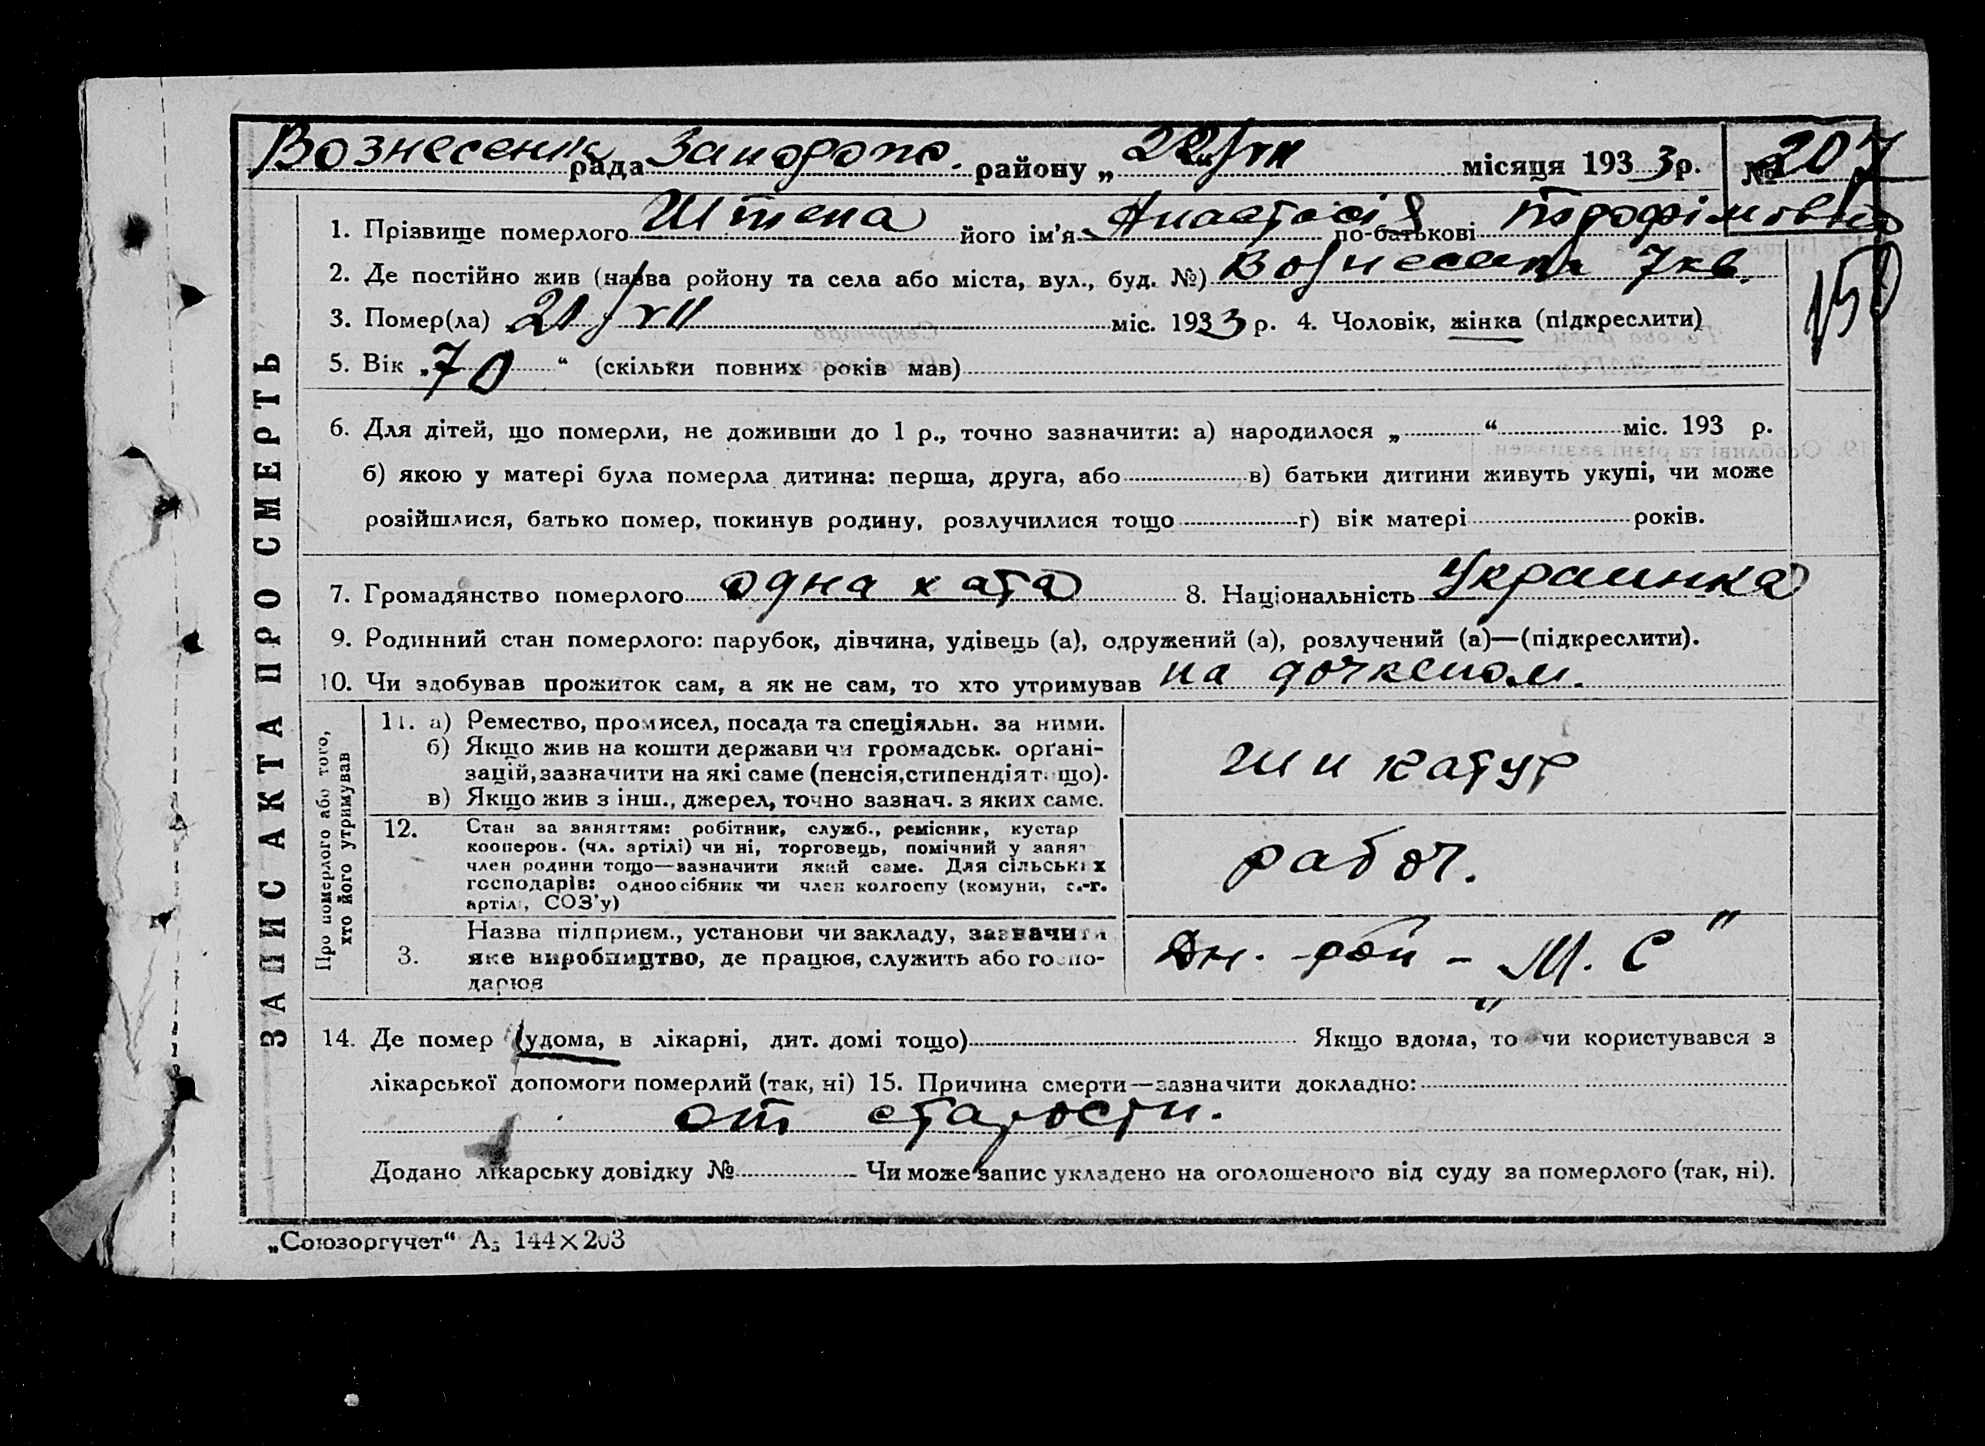 Вознесенк рада Запорож. району „22"/VII місяця 1933 р. № 207
ЗАПИС АКТА ПРО СМЕРТЬ
1. Прізвище померлого Штепа його ім'я Анастасія по-батькові Трофімовна
2. Де постійно жив (назва ройону та села або міста, вул., буд. №) Вознесенка 7 кв.
150
3. Помер(ла) 21/VII міс. 1933 р. 4. Чоловік, жінка (підкреслити)
5. Вік „70" (скільки повних років мав)
6. Для дітей, що померли, не доживши до 1 р., точно зазначити: а) народилося „ " міс. 193 р.
б) якою у матері була померла дитина: перша, друга, або в) батьки дитини живуть укупі, чи може
розійшлися, батько помер, покинув родину, розлучилися тощо г) вік матері років.
7. Громадянство померлого одна хата 8. Національність Украинка
9. Родинний стан померлого: парубок, дівчина, удівець (а), одружений (а), розлучений (а)—(підкреслити).
10. Чи здобував прожиток сам, а як не сам, то хто утримував на
Про померлого або того,
хто його утримував
11. а) Ремество, промисел, посада та спеціяльн. за ними.
б) Якщо жив на кошти держави чи громадськ. орґані-
зацій, зазначити на які саме (пенсія, стипендія тощо).
в) Якщо жив з інш., джерел, точно зазнач. з яких саме.
штукатур
12. Стан за заняттям: робітник, служб., ремісник, кустар
кооперов. (чл. артілі) чи ні, торговець, помічний у занят
член родини тощо—зазначити який саме. Для сільських
господарів: одноосібник чи член колгоспу (комуни, с.-г.
артілі, СОЗ'у)
рабоч.
3. Назва підприєм., установи чи закладу, зазначити
яке виробництво, де працює, служить або госпо-
дарює
Дн. - „М. С"
14. Де помер (удома, в лікарні, дит. домі тощо) Якщо вдома, то чи користувався з
лікарської допомоги померлий (так, ні) 15. Причина смерти—зазначити докладно:
от старости.
Додано лікарську довідку № Чи може запис укладено на оголошеного від суду за померлого (так, ні).
„Союзоргучет" А5 144×203